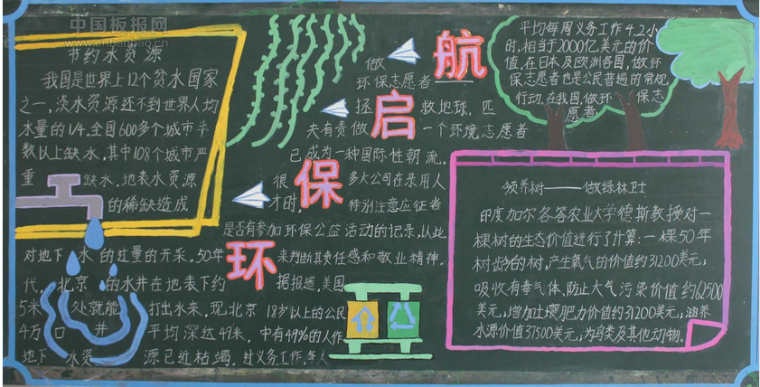 中国板报网
节约水资源
我国是世界上12个贫水国家
之一,淡水资源还不到世界人均
水量的1/4,全国600多个城市半
数以上缺水,其中108个城市严
重缺水,地表水资源
的稀缺造成
对地下水的过量的开采,50年
代,北京的水井在地表下约
5米处就能打出水来,现北京
4万口井平均深达49米,
地下水资源已近枯竭,
环保启航
做
环保志愿者
拯救地球,匹
夫有责做一个环境志愿者
已成为一种国际性朝流,
很多大公司在录用人
才时,特别注意应征者
是否有参加环保公益活动的记录,从此
来判断其责任感和敬业精神,
据报道,美国
18岁以上的公民
中有49%的人作
过义务工作,每人
平均每周义务工作4.2小
时,相当于2000亿美元的价
值,在日本及欧洲各国,做环
保志愿者也是公民普遍的常规
行动,在我国,做环保志
愿者
领养树——做绿林卫士
印度加尔各答农业大学德斯教授对一
棵树的生态价值进行了计算:一棵50年
树龄的树,产生氧气的价值约31200美元;
吸收有毒气体、防止大气污染价值约62500
美元,增加土壤肥力价值约31200美元;涵养
水源价值37500美元;为鸟类及其他动物。